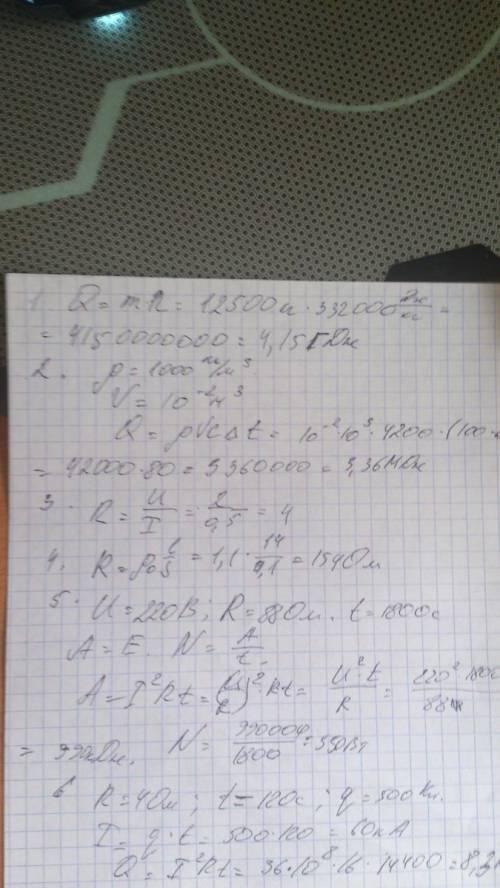 1. Q = mλ = 12500 кг · 332000 Дж/кг =
= 4150000000 = 4,15 ГДж
2. ρ = 1000 кг/м³
V = 10⁻² м³
Q = ρVcΔt = 10⁻² · 10³ · 4200 · (100-
= 42000 · 80 = 3360000 = 3,36 МДж
3. R = U/I = 2/0,5 = 4
4. R = ρ₀ l/S = 1,1 · 14/0,1 = 154 Ом
5. U = 220 В; R = 88 Ом. t = 1800 с
A = E. N = A/t.
A = I²Rt = (U/R)² · Rt = U² · t/R = 220² · 1800/88
= 990 кДж. N = 990000/1800 = 550 Вт
6 R = 4 Ом; t = 120 с; q = 500 Кл.
I = q · t = 500 · 120 = 60 кА
Q = I²Rt = 36 · 10⁸ · 16 · 14400 = 8,3